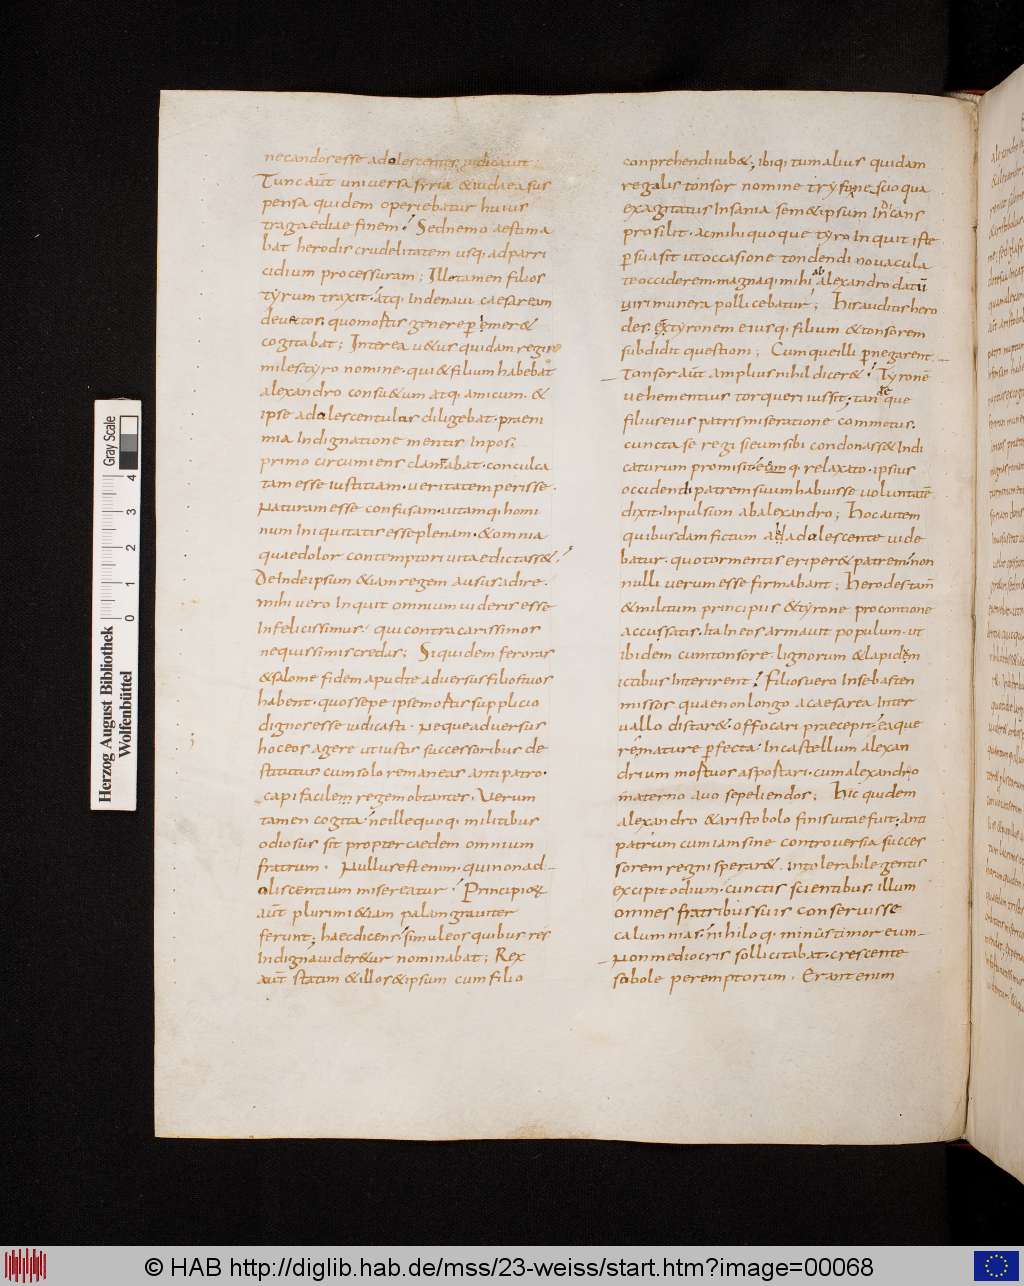 necandos esse adolescentes iudicauit;
Tunc aūt uniuersa syria &iudaea sus
pensa quidem operiebatur huius
tragaediae finem; Sed nemo aestima
bat herodis crudelitatem usq; ad parri
cidium processuram; Ille tamen filios
tyrum traxit; atq; Inde naui caesaream
deuectos, quo mortis genere perimer&
cogitabat; Interea u&us quidam regis
miles tyro nomine, qui &filium habebat
alexandro consu&um atq; amicum, &
ipse adolescentulus diligebat, praeni
mia Indignatione mentis Inpos;
primo circumiens clamabat, conculca
tam esse iustitiam, ueritatem perisse,
Naturam esse confusam, uitamq; homi
num Iniquitatis esse plenam, &omnia
quae dolor contemptori uitae dictass&;
Deinde ipsum &iam regem ausus adire,
mihi uero Inquit omnium uideris esse
Infelicissimus, qui contra carissimos
nequissimis credas; Siquidem feroras
&salome fidem apud te aduersus filios tuos
habent, quos sepe ipse mortis supplicio
dignos esse iudicasti, Neque aduersus
hoc eos agere ut iustis successoribus de
stitutus cum solo remaneas antipatro,
capi facilem regem obtantes, Verum
tamen cogita; ne ille quoq; militibus
odiosus sit propter caedem omnium
fratrum, Nullus est enim, qui non ad-
oliscentium misereatur; Principioq;
aūt plurimi &iam palam grauiter
ferunt; haec dicens simul eos quibus res
Indigna uider&ur nominabat; Rex
aūt statim &illos &ipsum cum filio
conprehendi iub&; ibiq; tum alius quidam
regalis tonsor nomine tryfone, scio qua
exagitatus Insania, sem&ipsum Indicans
prosilit, ac mihi quoque tyro Inquit iste
persuasit ut occasione tondendi nouacula
te occiderem, magnaq; mihi ab alexandro datū
uiri munera pollicebatur; His auditis hero
des, &tyronem eiusq; filium &tonsorem
subdidit questioni; Cumque illi pernegarent
Tonsor aūt amplius nihil dicer&; Tyronē
uehementius torqueri iussit, tandeque
filius eius patris miseratione commotus,
cuncta se regi si eum sibi condonass& Indi
caturum promisit, eum q; relaxato, ipsius
occidendi patrem suum habuisse uoluntatē
dixit, Inpulsum ab alexandro; Hoc autem
quibusdam fictum ab adolescente uide
batur, quo tormentis eriper& patrem, non
nulli uerum esse firmabant; Herodes tam
&militum principiis &tyrone pro contione
accusatis, Ita In eos armauit populum, ut
ibidem cum tonsore, lignorum &lapidem
ictibus Interirent; Filios uero In sebasten
missos quae non longo a caesarea Inter
uallo distar&, offocari praecepit; Eaque
re mature perfecta, In castellum alexan
drium mortuos asportari, cum alexandro
materno auo sepeliendos; Hic quidem
alexandro &aristobolo finis uitae fuit; Anti
patrum cum iam sine controuersia succes
sorem regni sperar&, Intolerabile gentis
excipit odium, cunctis scientibus, illum
omnes fratribus suis conseruisse
calumnias, nihiloq; minus timor eum
Non mediocris sollicitabat, crescente
sobole peremptorum, Erant enim
Gray Scale
0 1 2 3 4
Herzog August Bibliothek
Wolfenbüttel
© HAB http://diglib.hab.de/mss/23-weiss/start.htm?image=00068